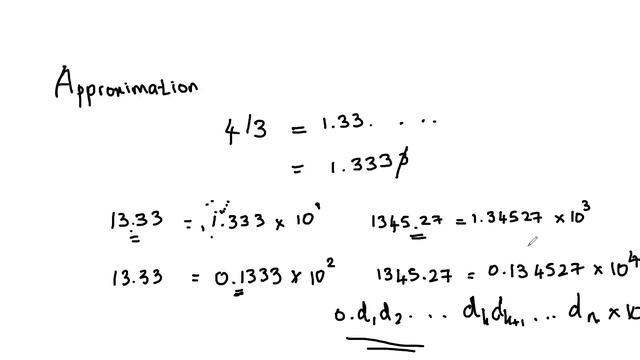 Approximation
4/3 = 1.33. . . .
= 1.333
13.33 = 1.333 × 10¹ 1345.27 = 1.34527 × 10³
13.33 = 0.1333 × 10² 1345.27 = 0.134527 × 10⁴
0.d₁d₂ ... dₖdₖ₊₁ ... dₙ × 10